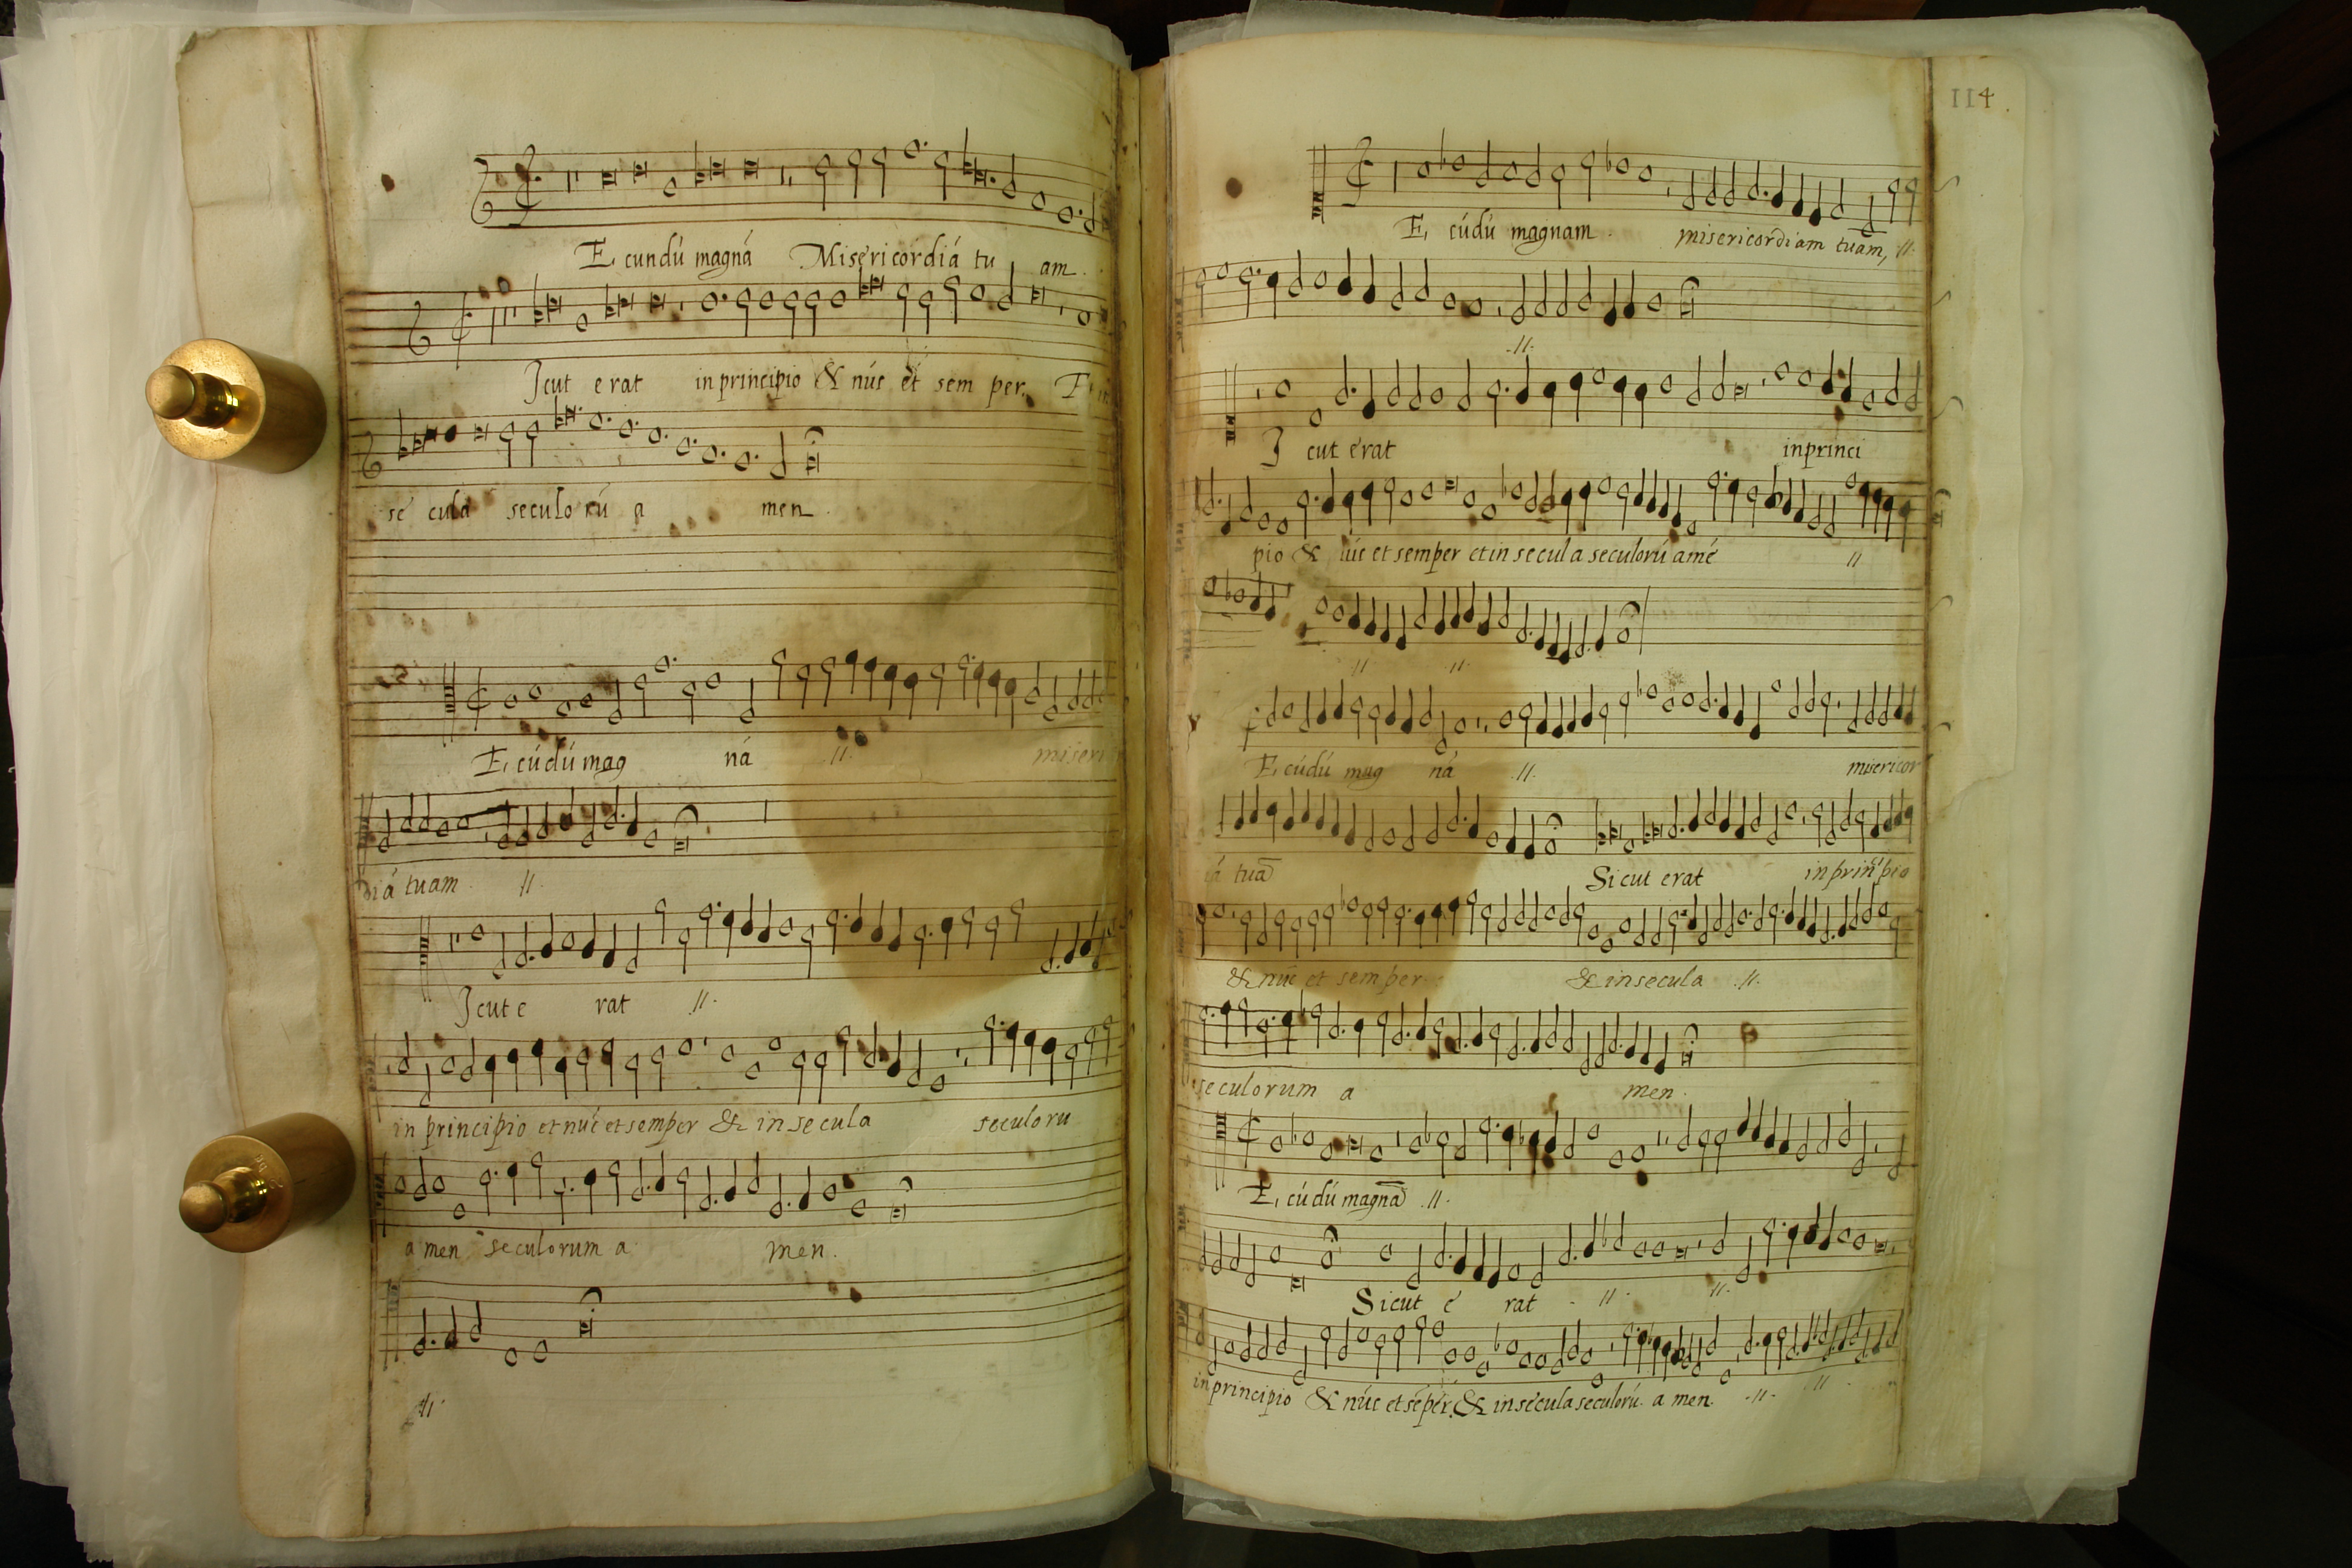 E, cundú magná Misericordiá tu am.
Jcut erat inprincipio & núc et sem per.
se cula seculo rú a men.
E, cúdú mag ná .||. miseri
diá tuam .||.
Jcut e rat .||.
in principio et núc et semper & in se cula seculoru
a men seculorum a men.
.||.
114.
E, cúdú magnam. misericordiam tuam, .||.
.||.
J cut erat inprinci
pio & núc et semper et in secula seculorú amé ||
|| .||.
E, cúdú mag ná .||. misericor
tuā Sicut erat inprincipio
& núc et semper. & insecula .||.
seculorum a men.
E, cúdú magnā .||.
Sicut é rat .||. .||.
inprincipio & núc et séper. & insécula seculorú. a men. .||. ||.